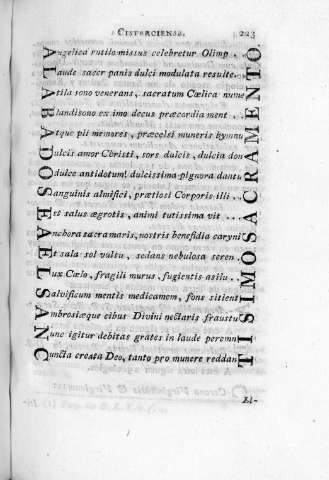 CISTERCIENSE. 223
ALABADO SEA EL SANC
ngelica rutilo missus celebretur Olimp . .
aude sacer panis dulci modulata resulte.
tila sono venerans, sacratum Cœlica nume
landisono ex imo decus præcordia ment . .
tque pii memores, præcelsi muneris hymnu
ulcis amor Christi, sors dulcis, dulcia don
dulce antidotum! dulcissima pignora dantu
anguinis almifici, prætiosi Corporis illi . .
st salus ægrotis, animi tutissima vit . . .
nchora sacra maris, nostris benefidia caryni
t sala sol vultu, sedans nebulosa seren . .
ux Cœlo, fragili murus, fugientis asilu . .
alvificum mentis medicamem, fons sitient
mbrosiæque cibus Divini nectaris fraustu
unc igitur debitas grates in laude peremn
uncta creata Deo, tanto pro munere reddan
TISIMO SACRAMENTO
El-